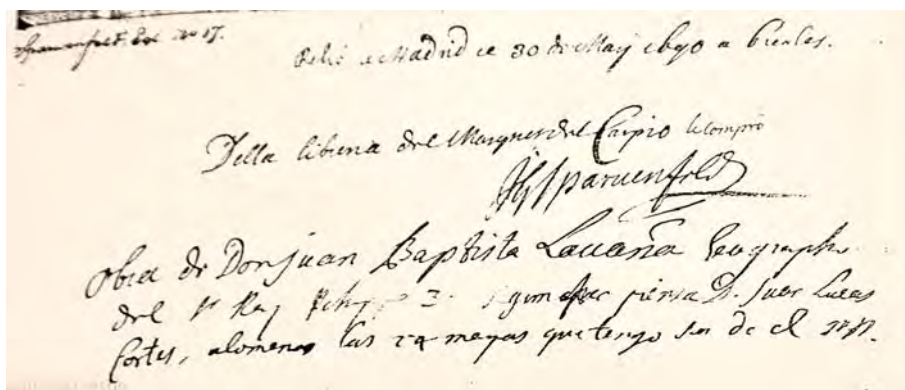 Sparwenfeldt. Col. No 17.
Relié a Madrid ce 30 de May 1690
Della libreria del Marques del Carpio le compro
JGSparuenfeld
Obra de Don Juan Baptista Lavaña Geographo
del Sr Rey Felippe 3. segun piensa D. Juan Lucas
Cortes, alomenos las 24 mapas que tengo son de el